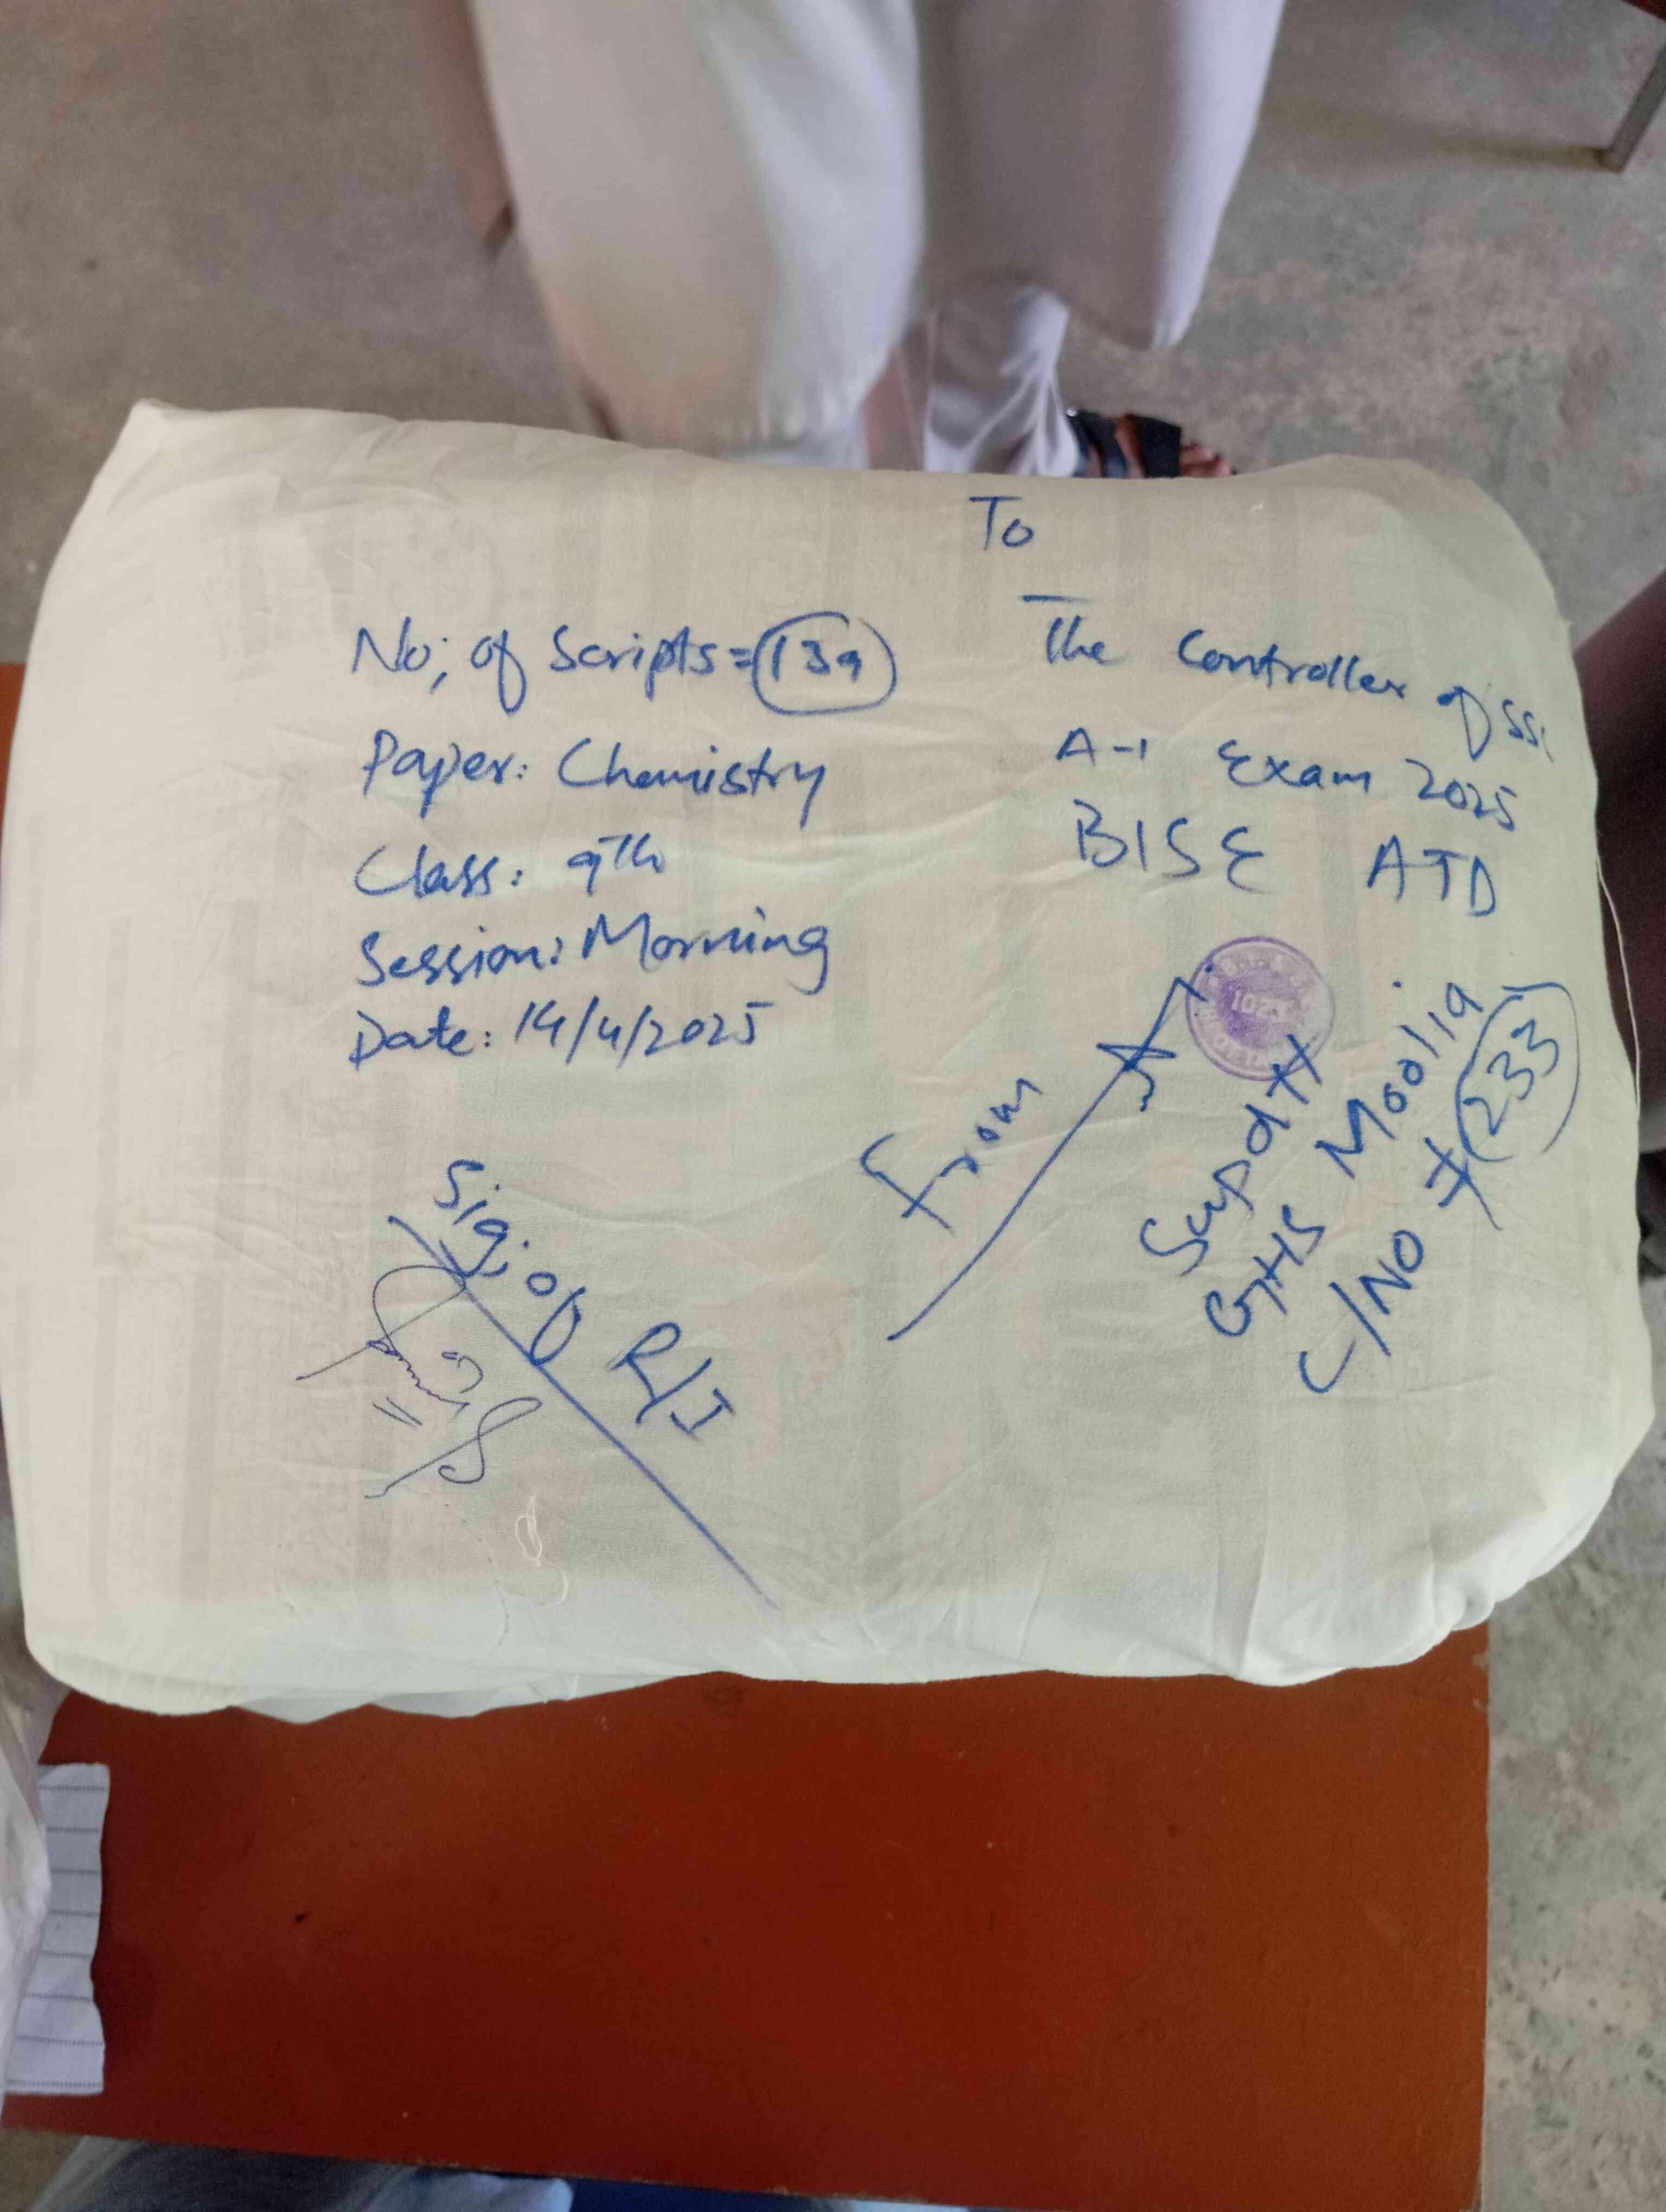 To
The Controller of SSC
A-1 Exam 2025
BISE ATD
No; of Scripts = 139
Paper: Chemistry
Class: 9th
Session: Morning
Date: 14/4/2025
From
Supdtt
GHS Moolia
C/No # 233
Sig; of R/I